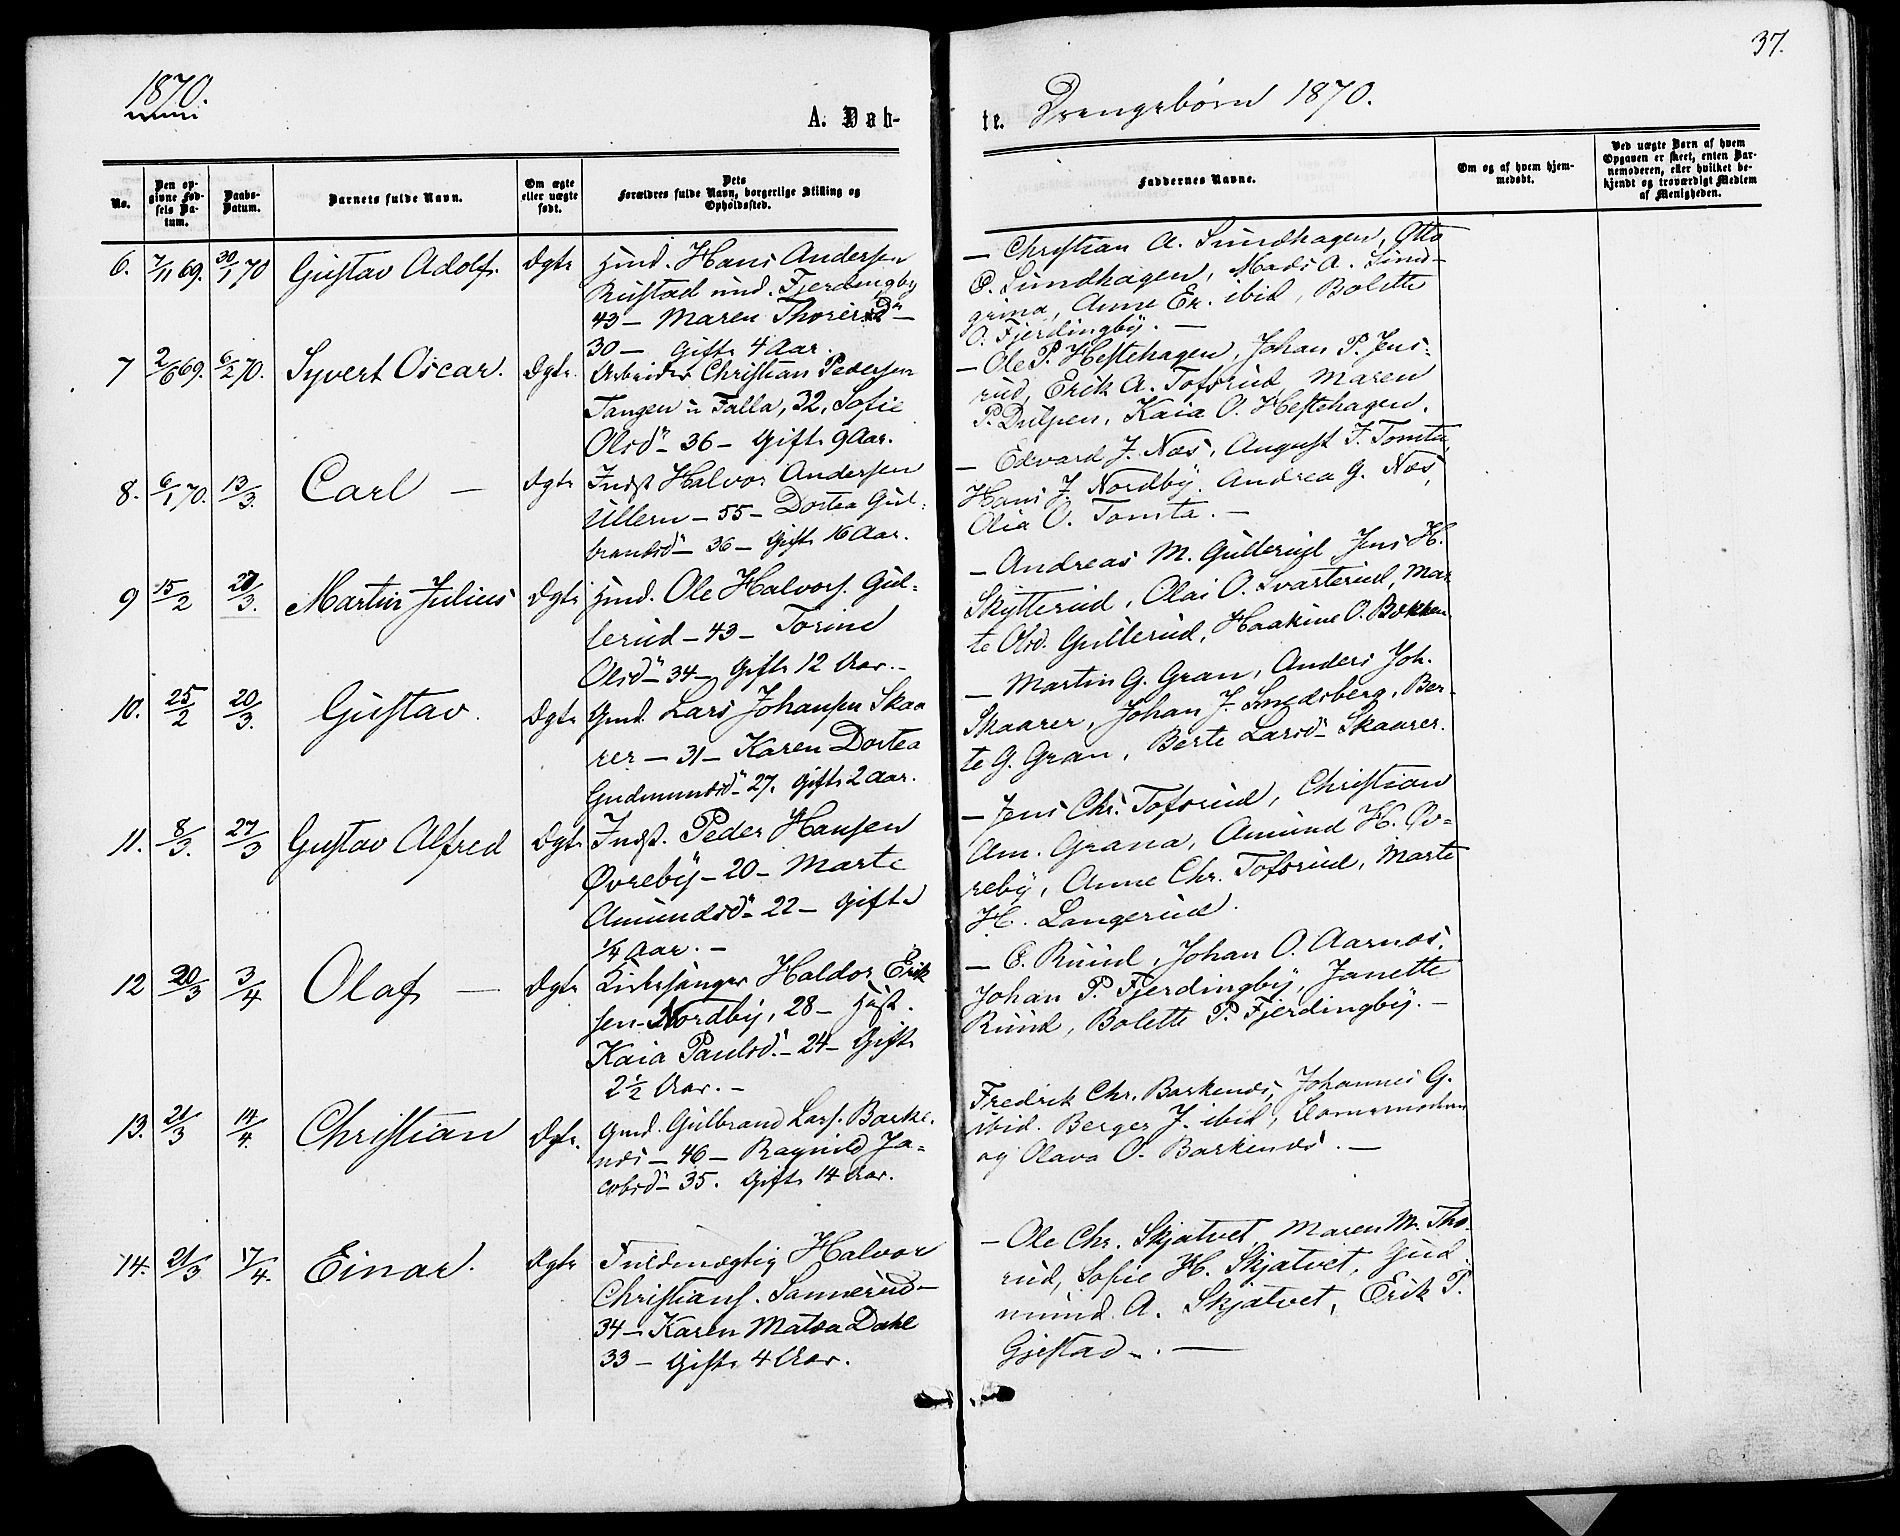 1870.
A. Døb-
No.
Den op-
givne Fød-
sels Da-
tum.
Daabs-
Datum.
Barnets fulde Navn.
Om ægte
eller uægte
født.
Dets
Forældres fulde Navn, borgerlige Stilling og
Opholdssted.
6. 7/11 69. 30/1 70 Gustav Adolf. Ægte
Hans Andersen
Rustad und. Fjerdingby
43 — Maren
30 — Gift 4 Aar.
7 2/6 69. 6/2 70. Syvert Oscar. Ægte.
Arbeider Christian Pedersen
Tangen u Falla, 32, Sofie
Olsdr 36 — Gift 9 Aar.
8. 6/1 70. 13/3. Carl — Ægte
Indst Halvor Andersen
Ullern — 55 — Dortea Gul-
brandsd — 36 — Gift 16 Aar.
9 15/2 20/3. Martin Julius Ægte
Ole Halvors. Gul-
lerud — 43 — Torine
Olsd — 34 — Gift 12 Aar. —
10. 25/2 20/3. Gustav. Ægte
Gmd. Lars Johansen Skaa
rer — 31 — Karen Dortea
Gudmundsd — 27. Gift 2 Aar.
11. 8/3. 27/3 Gustav Alfred Ægte
Indst. Peder Hansen
Øvreby — 20 — Marte
Amundsd — 22 — Gift
1/4 Aar. —
12 20/3 3/4 Olaf — Ægte
Kirkesanger Haldor Erik
sen Nordby, 28 — Hust.
Kaia Paulsd. — 24 — Gift
2 1/2 Aar. —
13. 21/3 14/4. Christian Ægte.
Gmd. Gulbrand Lars. Barke-
næs — 46 — Ragnild Ja-
cobsd — 35. Gift 14 Aar.
14. 21/3 17/4. Einar. Ægte
Fuldmægtig Halvor
Christians. Sannerud —
34 — Karen Matea Dahl
33 — Gift 4 Aar.
37.
te. Drengebørn 1870.
Faddernes Navne.
Om og af hvem hjem-
medøbt.
Ved uægte Børn af hvem
Opgaven er skeet, enten Bar-
nemoderen, eller hvilket be-
kjendt og troværdigt Medlem
af Menigheden.
— Christian A. Sundhagen, Otto
O. Sundhagen, Mads A.
Anne Er. ibid, Bolette
O. Fjerdingby. —
— Ole P. Hestehagen, Johan P. Jens-
rud, Erik A. Tofsrud, Maren
P. Dulpen, Kaia O. Hestehagen.
— Edvard J. Næs, August J. Tomta,
Hans J. Nordby, Andrea G. Næs,
Olia O. Tomta. —
— Andreas M. Gullerud, Jens H.
Skytterud, Olai O. Svarterud, Mar-
te Olsd. Gullerud, Haakine O. Bekken
— Martin G. Gran, Anders Joh.
Skaarer, Johan J. Smedsberg, Ber-
te G. Gran, Berte Larsd — Skaarer.
— Jens Chr. Tofsrud, Christian
Am. Grana, Amund H. Øv-
reby, Anne Chr. Tofsrud, Marte
H. Langerud.
— C. Ruud, Johan O. Aarnæs,
Johan P. Fjerdingby, Janette
Ruud, Bolette P. Fjerdingby. —
Fredrik Chr. Barkenæs, Johannes G.
ibid. Berger J. ibid,
og Olava O. Barkenæs. —
— Ole Chr. Skjatvet, Maren M. Tho-
rud, Sofie H. Skjatvet, Gud-
mund A. Skjatvet, Erik P.
Gjestad. —